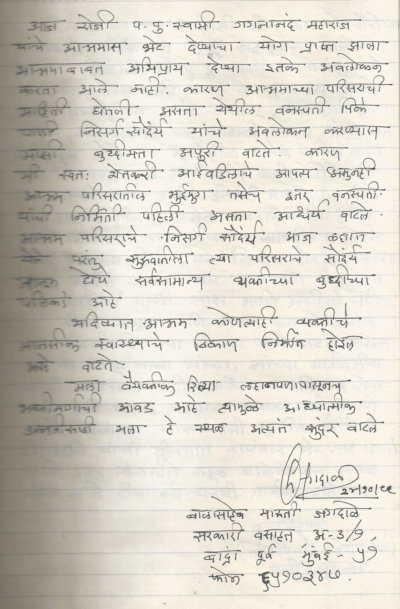 आज रोजी प. पु. स्वामी गगनानंद महाराज
यांचे आश्रमास भेट देण्याचा योग प्राप्त झाला
आश्रमाबाबत अभिप्राय देण्या इतके अवलोकन
करता आले नाही. कारण आश्रमाच्या परिसराची
माहिती घेतली असता येथील वनस्पती पिके
पाणी निसर्ग सौदर्य यांचे अवलोकन करण्यास
माझी बुध्दीमता अपुरी वाटते. कारण
मी स्वतः शेतकरी आईवडिलांचे आपत्य असुनही
आश्रम परिसरातील भुईमुग तसेच इतर वनस्पती
यांची निर्मिती पहिली असता आश्चर्य वाटले.
आश्रम परिसराचे निसर्ग सौदर्य आज लहान
परंतु त्या परिसराचे सौदर्य
येथे सर्वसामान्य व्यक्तीच्या बुध्दीच्या
पलिकडे आहे
भविष्यात आश्रम कोणत्याही व्यक्तीचे
मानसीक स्वास्थ्याचे ठिकाण निर्माण होईल
असे वाटते
मला वैयक्तीक रित्या लहानपणापासुनच
आवड आहे त्यामुळे आध्यात्मीक
उन्नतीसाठी मला हे स्थळ अत्यंत सुंदर वाटले
बाळासाहेब मारुती जगदाळे
सरकारी वसाहत अ-३/१,
बांद्रा पूर्व मुंबई - ५१
फोन ६५१०३४७.